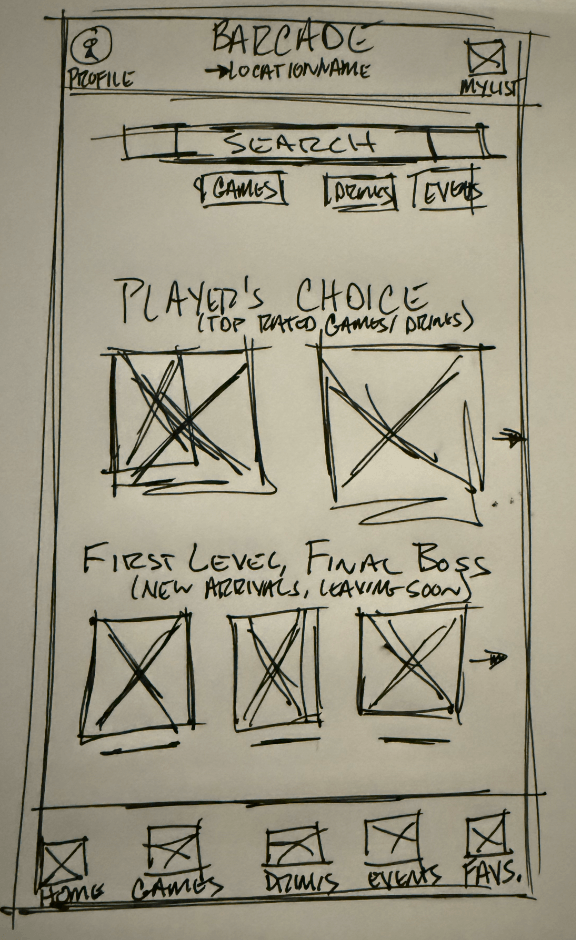 BARCADE
→LOCATION NAME
PROFILE
MY LIST
SEARCH
GAMES DRINKS EVENTS
PLAYER'S CHOICE
(TOP RATED GAMES/ DRINKS)
FIRST LEVEL, FINAL BOSS
(NEW ARRIVALS, LEAVING SOON)
HOME GAMES DRINKS EVENTS FAVS.